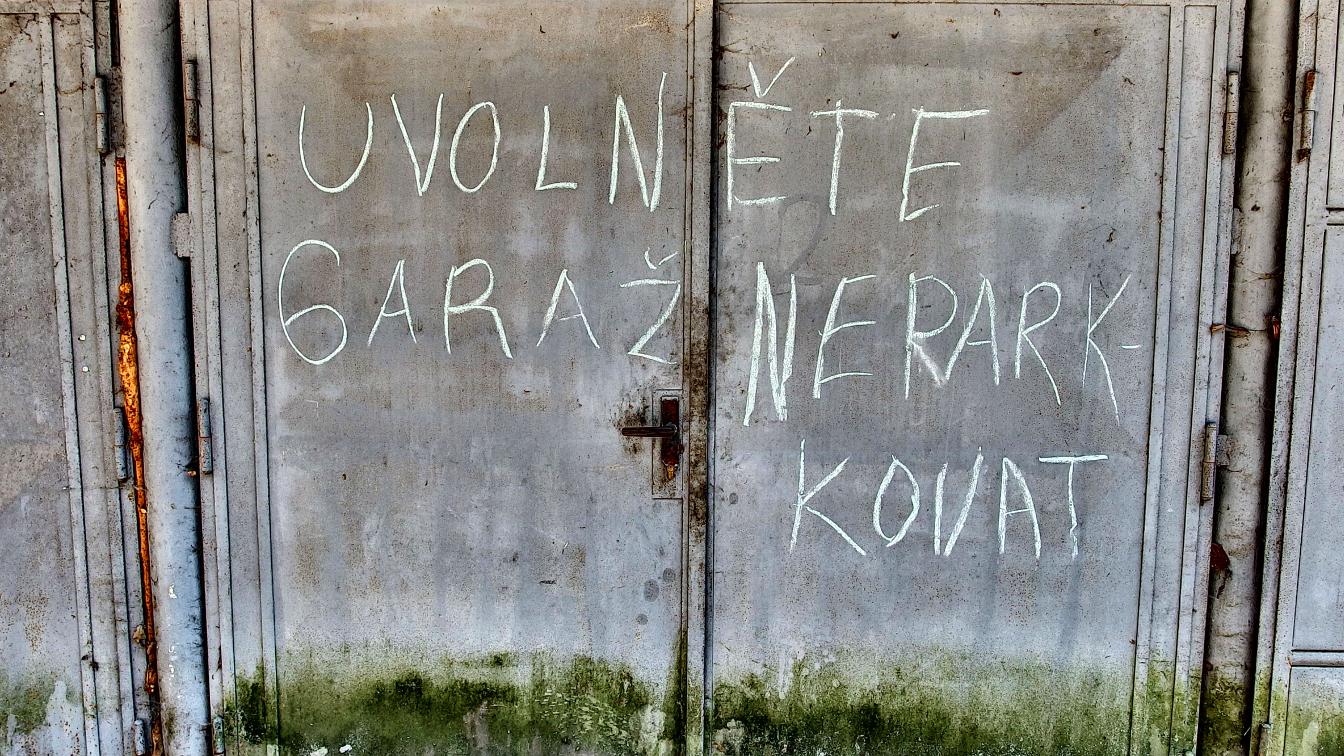 UVOLNĚTE
GARAŽ NEPARK-
KOVAT